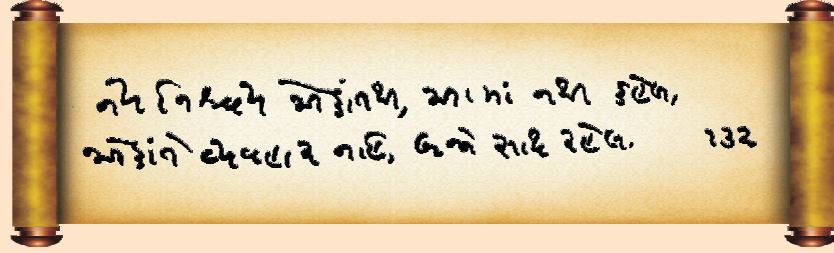 નય નિશ્ચય એકાંતથી, આમાં નથી કહેલ,
એકાંતે વ્યવહાર નહિ, બન્ને સાથ રહેલ. ૧૩૨